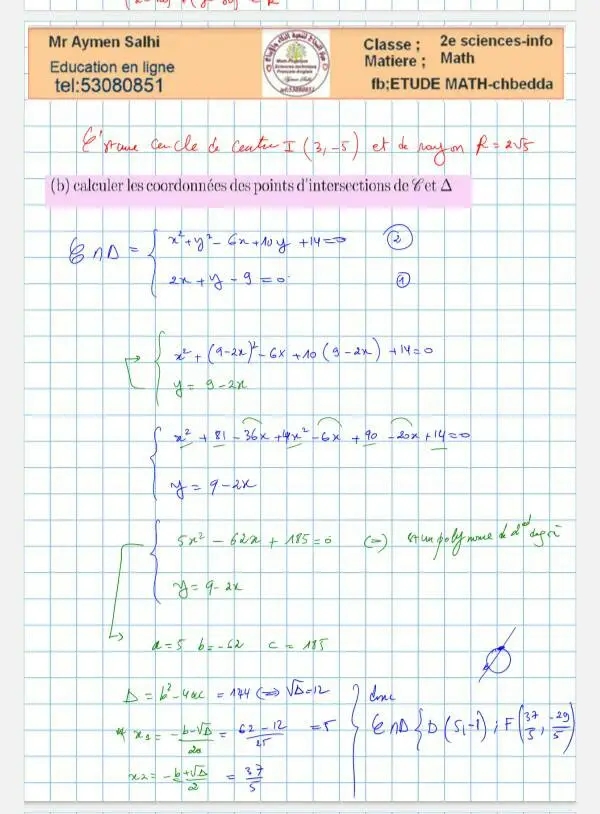 Mr Aymen Salhi
Education en ligne
tel:53080851
Classe ; 2e sciences-info
Matiere ; Math
fb;ETUDE MATH-chbedda
cercle de centre I (3,-5) et de rayon R = 2√5
(b) calculer les coordonnées des points d'intersections de 𝒞 et Δ
𝒞 ∩ Δ = { x² + y² - 6x + 10y + 14 = 0 ②
2x + y - 9 = 0 ①
x² + (9-2x)² - 6x + 10 (9-2x) + 14 = 0
y = 9-2x
x² + 81 - 36x + 4x² - 6x + 90 - 20x + 14 = 0
y = 9-2x
5x² - 62x + 185 = 0 (=) est un polynome de 2nd degré
y = 9-2x
a = 5 b = -62 c = 185
Δ = b² - 4ac = 144 (=) √Δ = 12
x1 = (-b-√Δ)/2a = (62-12)/25 = 5
x2 = (-b+√Δ)/2 = 37/5
donc
𝒞 ∩ Δ { D (5,-1) ; F (37/5, -29/5)